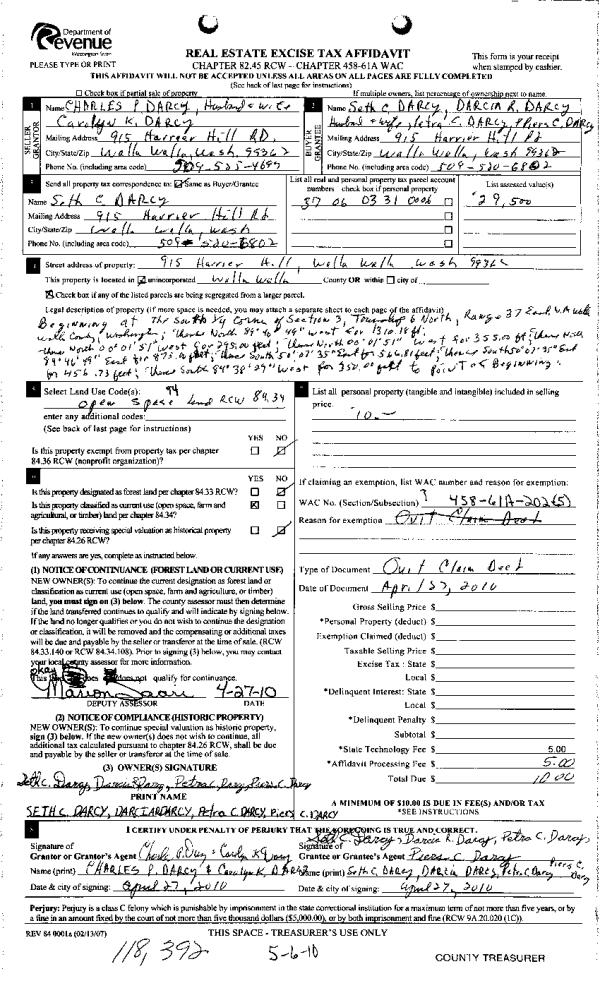 Department of
Revenue
Washington State
PLEASE TYPE OR PRINT
REAL ESTATE EXCISE TAX AFFIDAVIT
CHAPTER 82.45 RCW – CHAPTER 458-61A WAC
This form is your receipt
when stamped by cashier.
THIS AFFIDAVIT WILL NOT BE ACCEPTED UNLESS ALL AREAS ON ALL PAGES ARE FULLY COMPLETED
(See back of last page for instructions)
Check box if partial sale of property
If multiple owners, list percentage of ownership next to name.
1 Name CHARLES P. DARCY, Husband + wife
Carolyn K. DARCY
SELLER GRANTOR
Mailing Address 915 Harrier Hill RD.
City/State/Zip Walla Walla, Wash. 99362
Phone No. (including area code) 509-525-4695
2 Name Seth C. DARCY, DARCIA R. DARCY
Husband + wife, Petra C. DARCY, Piers C. DARCY
BUYER GRANTEE
Mailing Address 915 Harrier Hill Rd
City/State/Zip Walla Walla, Wash 99362
Phone No. (including area code) 509-520-6802
3 Send all property tax correspondence to: Same as Buyer/Grantee
Name Seth C DARCY
Mailing Address 915 Harrier Hill Rd
City/State/Zip Walla Walla, Wash
Phone No. (including area code) 509-520-6802
List all real and personal property tax parcel account
numbers – check box if personal property
37 06 03 31 0006
List assessed value(s)
29,500
4 Street address of property: 915 Harrier Hill, Walla Walla Wash 99362
This property is located in unincorporated Walla Walla County OR within city of
Check box if any of the listed parcels are being segregated from a larger parcel.
Legal description of property (if more space is needed, you may attach a separate sheet to each page of the affidavit)
Beginning at the South 1/4 Corner of Section 3, Township 6 North, Range 37 East W.M. Walla
Walla County, Washington; thence North 89°46'49" West for 1310.18 ft;
thence North 00°01'51" West for 295.00 feet; thence North 00°01'51" West for 355.00 ft; thence North
89°46'49" East for 875.00 feet; thence South 50°07'35" East for 566.81 feet; thence South 50°07'35" East
for 456.73 feet; thence South 89°38'09" West for 350.00 feet to point of Beginning.
5 Select Land Use Code(s): 94
open space land RCW 84.34
enter any additional codes:
(See back of last page for instructions)
YES NO
Is this property exempt from property tax per chapter
84.36 RCW (nonprofit organization)?
6
YES NO
Is this property designated as forest land per chapter 84.33 RCW?
Is this property classified as current use (open space, farm and
agricultural, or timber) land per chapter 84.34?
Is this property receiving special valuation as historical property
per chapter 84.26 RCW?
If any answers are yes, complete as instructed below.
(1) NOTICE OF CONTINUANCE (FOREST LAND OR CURRENT USE)
NEW OWNER(S): To continue the current designation as forest land or
classification as current use (open space, farm and agriculture, or timber)
land, you must sign on (3) below. The county assessor must then determine
if the land transferred continues to qualify and will indicate by signing below.
If the land no longer qualifies or you do not wish to continue the designation
or classification, it will be removed and the compensating or additional taxes
will be due and payable by the seller or transferor at the time of sale. (RCW
84.33.140 or RCW 84.34.108). Prior to signing (3) below, you may contact
your local county assessor for more information.
okay
This land does does not qualify for continuance.
Marion Saari 4-27-10
DEPUTY ASSESSOR DATE
(2) NOTICE OF COMPLIANCE (HISTORIC PROPERTY)
NEW OWNER(S): To continue special valuation as historic property,
sign (3) below. If the new owner(s) does not wish to continue, all
additional tax calculated pursuant to chapter 84.26 RCW, shall be due
and payable by the seller or transferor at the time of sale.
(3) OWNER(S) SIGNATURE
Seth C. Darcy, Darcia R Darcy, Petra C. Darcy, Piers C. Darcy
PRINT NAME
SETH C. DARCY, DARCIA R DARCY, Petra C. DARCY, Piers C. DARCY
7 List all personal property (tangible and intangible) included in selling
price.
10.–
If claiming an exemption, list WAC number and reason for exemption:
WAC No. (Section/Subsection) 458-61A-202(5)
Reason for exemption Quit Claim Deed
Type of Document Quit Claim Deed
Date of Document April 27, 2010
Gross Selling Price $
*Personal Property (deduct) $
Exemption Claimed (deduct) $
Taxable Selling Price $
Excise Tax : State $
Local $
*Delinquent Interest: State $
Local $
*Delinquent Penalty $
Subtotal $
*State Technology Fee $ 5.00
*Affidavit Processing Fee $ 5.00
Total Due $ 10.00
A MINIMUM OF $10.00 IS DUE IN FEE(S) AND/OR TAX
*SEE INSTRUCTIONS
8 I CERTIFY UNDER PENALTY OF PERJURY THAT THE FOREGOING IS TRUE AND CORRECT.
Signature of
Grantor or Grantor's Agent Charles P. Darcy + Carolyn K Darcy
Name (print) CHARLES P. DARCY & Carolyn K. DARCY
Date & city of signing: April 27, 2010
Seth C. Darcy, Darcia R. Darcy, Petra C. Darcy
Signature of
Grantee or Grantee's Agent Piers C. Darcy
Name (print) Seth C. DARCY, DARCIA DARCY, Petra C. Darcy Piers C. Darcy
Date & city of signing: April 27, 2010
Perjury: Perjury is a class C felony which is punishable by imprisonment in the state correctional institution for a maximum term of not more than five years, or by
a fine in an amount fixed by the court of not more than five thousand dollars ($5,000.00), or by both imprisonment and fine (RCW 9A.20.020 (1C)).
REV 84 0001a (02/13/07)
THIS SPACE - TREASURER'S USE ONLY
118,392 5-6-10
COUNTY TREASURER